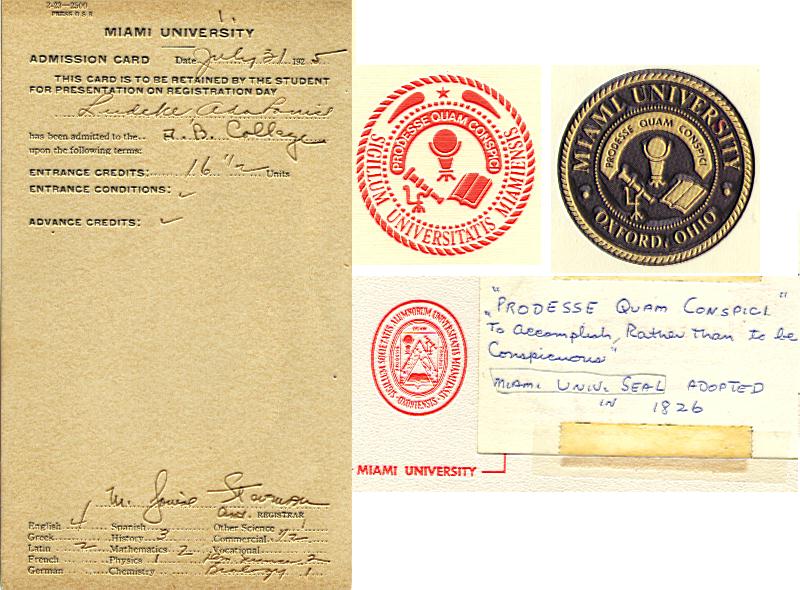 2-23—2500
PRESS O S R
1.
MIAMI UNIVERSITY
ADMISSION CARD Date July 31 1925
THIS CARD IS TO BE RETAINED BY THE STUDENT
FOR PRESENTATION ON REGISTRATION DAY
has been admitted to the A. B. College
upon the following terms:
ENTRANCE CREDITS: 16 1/2 Units
ENTRANCE CONDITIONS: ✓
ADVANCE CREDITS: ✓
M. Louise
REGISTRAR
English 4 Spanish Other Science 1
Greek History 3 Commercial 1/2
Latin 2 Mathematics 2 Vocational
French Physics 1 2
German Chemistry Biology 1
SIGILLUM UNIVERSITATIS MIAMIENSIS
PRODESSE QUAM CONSPICI
MIAMI UNIVERSITY
PRODESSE QUAM CONSPICI
OXFORD, OHIO
SIGILLUM SOCIETATIS ALUMNORUM UNIVERSITATIS MIAMIENSIS
OXONIENSIS
MIAMI UNIVERSITY
"PRODESSE QUAM CONSPICI"
"To Accomplish, Rather Than to be
Conspicuous"
MIAMI UNIV. SEAL ADOPTED
IN 1826